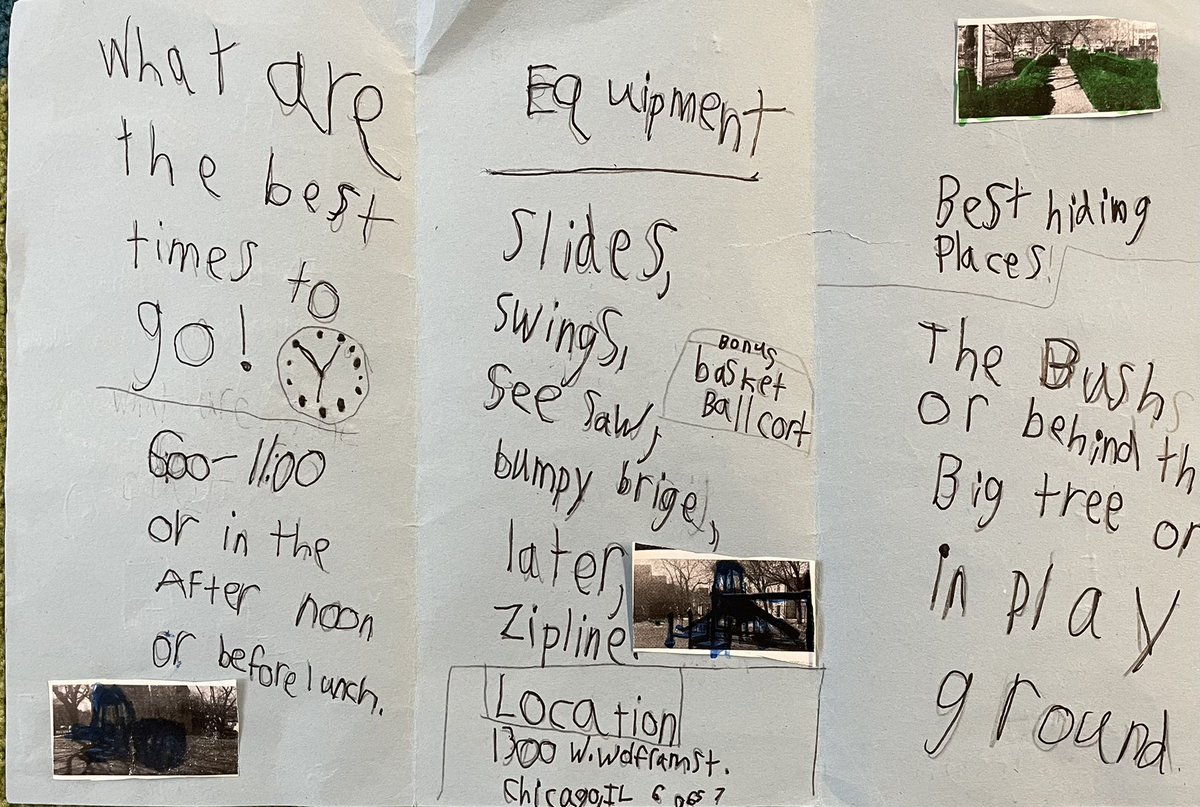 What are
the best
times to
go!
6:00-11:00
or in the
After noon
or before lunch.
Equipment
Slides,
Swings,
See Saw,
bumpy brige,
later,
Zipline.
Bonus
basket
Ball cort
Location
1300 W. Wolfram st.
Chicago, IL
Best hiding
Places!
The Bushs
or behind th
Big tree or
in play
ground.